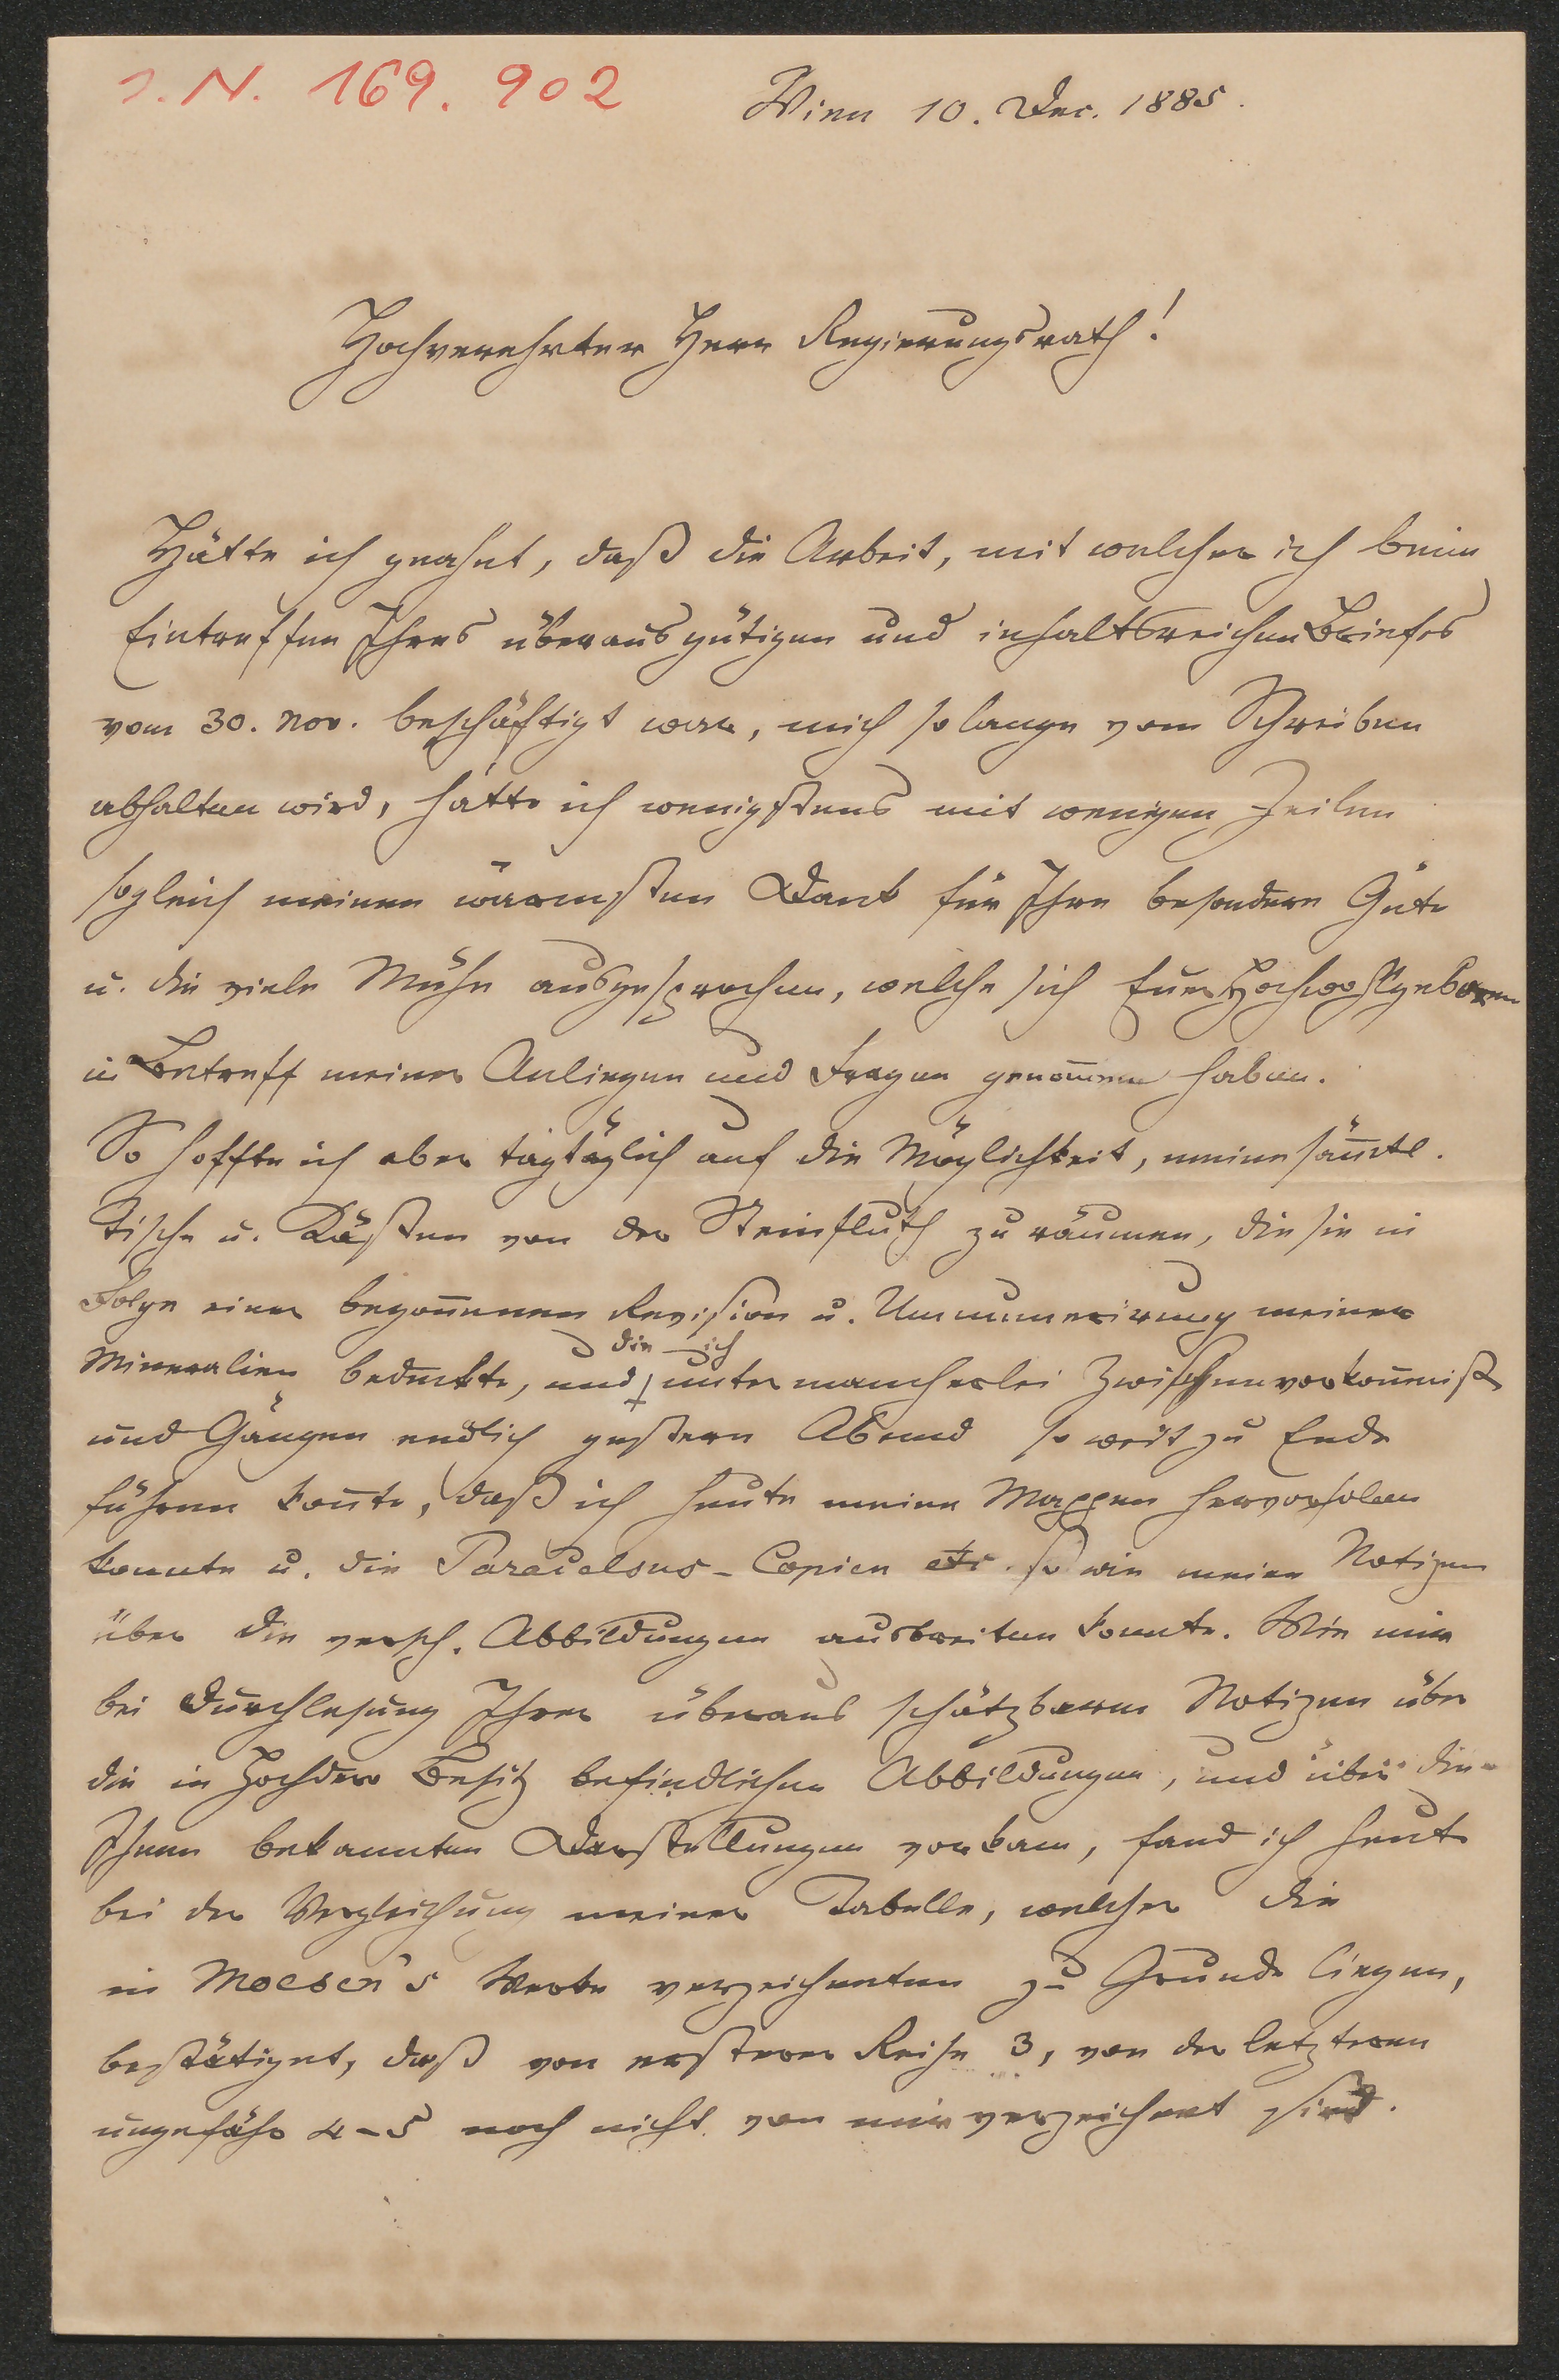 I. N. 169.902
Wien 10. Dec. 1885.
Hochverehrter Herr Regierungsrath!
Hätte ich geahnt, daß die Arbeit, mit welcher ich beim
Eintreffen Ihres überaus gütigen und inhaltsreichen Briefes
vom 30. Nov. beschäftigt war, mich so lange vom Schreiben
abhalten wird, hätte ich wenigstens mit wenigen Zeilen
sogleich meinen wärmsten Dank für Ihre besondere Güte
u. die viele Mühe ausgesprochen, welche sich Euer Hochwohlgeboren
in Betreff meiner Anliegen und Fragen genom̄en haben.
So hoffte ich aber tagtäglich auf die Möglichkeit, meine säm̄tl.
Tische u. Kästen von der Steinfluth zu räumen, die sie in
Folge einer begon̄enen Revision u. Umnumerirung meiner
Mineralien bedeckte, und die ich unter mancherlei Zwischenvorkom̄niß
und Gängen endlich gestern Abend so weit zu Ende
führen kon̄te, daß ich heute meine Mappen hervorholen
konnte u. die Paracelsus-Copien etc. so wie meine Notizen
über die versch. Abbildungen ausbreiten konnte. Wie mir
bei Durchlesung Ihrer überaus schätzbaren Notizen über
die in Hochdero Besitz befindlichen Abbildungen, und über die
Ihnen bekannten Darstellungen vorkam, fand ich heute
bei der Vergleichung meiner Tabelle, welcher die
in Moesen's Werke verzeichneten zu Grunde liegen,
bestätiget, daß von ersterer Reihe 3, von der letzteren
ungefähr 4-5 noch nicht von mir verzeichnet sind.